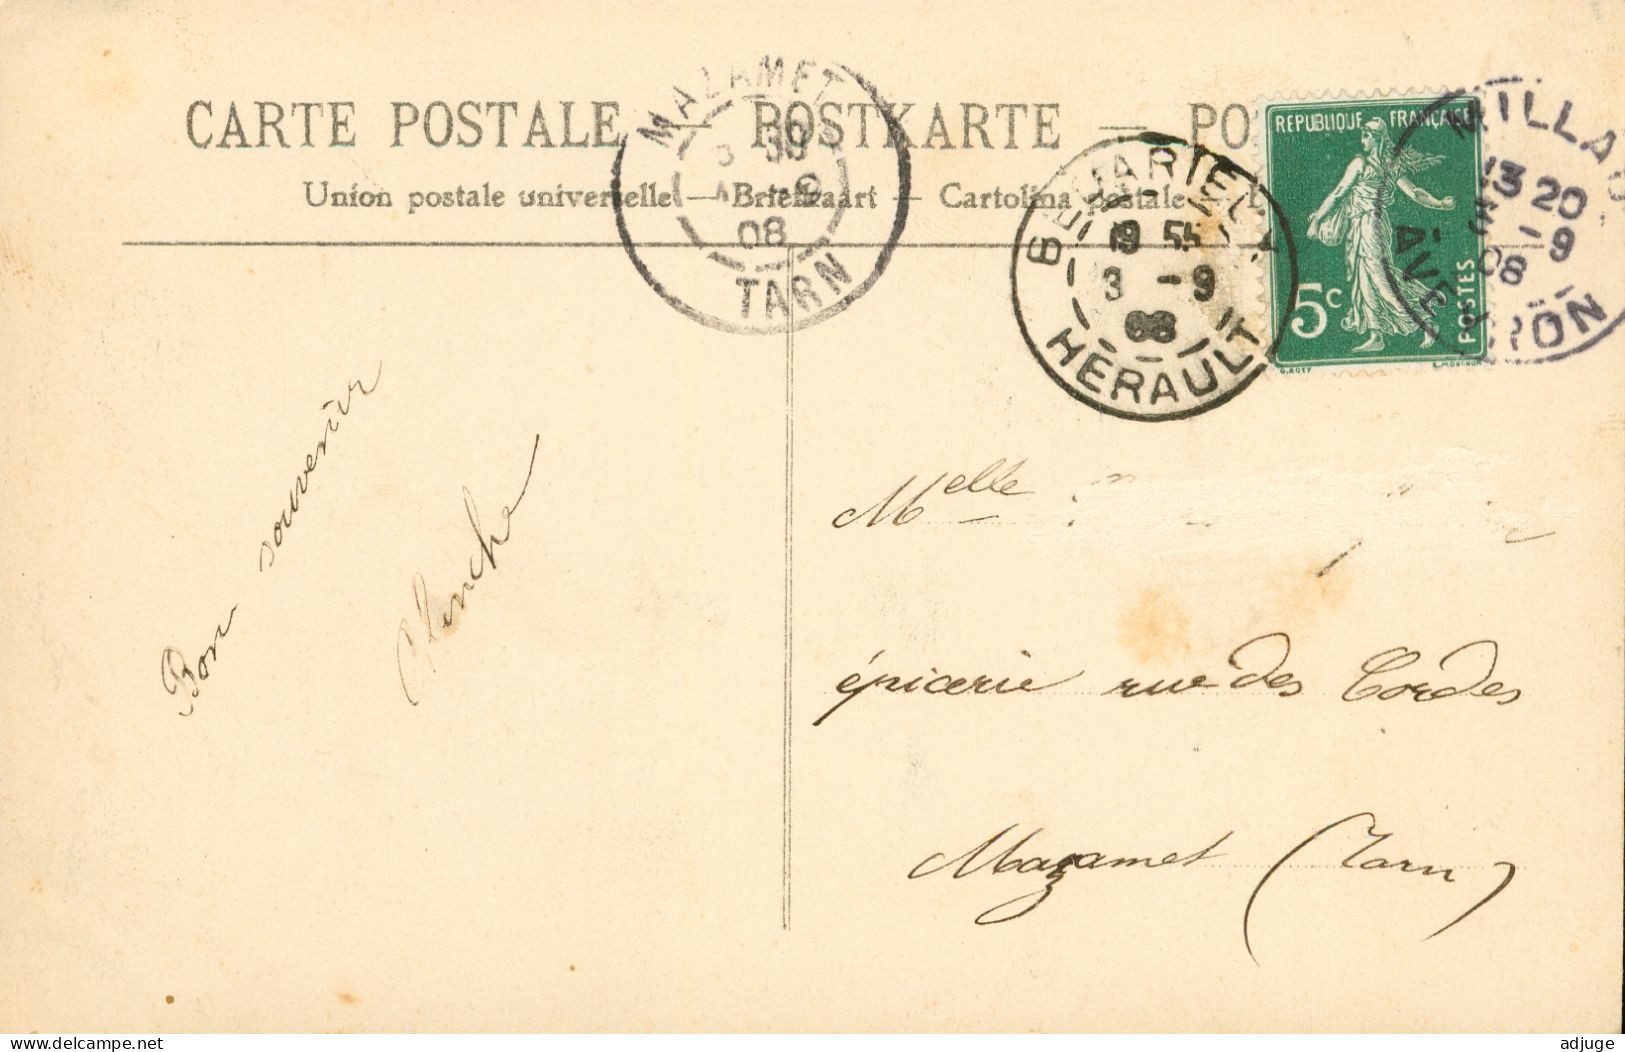 CARTE POSTALE — POSTKARTE — PO
Union postale universelle — Briefkaart — Cartolina postale
MAZAMET
08
TARN
19 55
3 - 9
HÉRAULT
REPUBLIQUE FRANÇAISE
5c
POSTES
O. ROTY
E. MOUCHON
MILLAU
13 20
3 - 9
08
AVEYRON
Bon souvenir
Melle
épicerie rue des Cordes
Mazamet (Tarn)
www.delcampe.net
adjuge